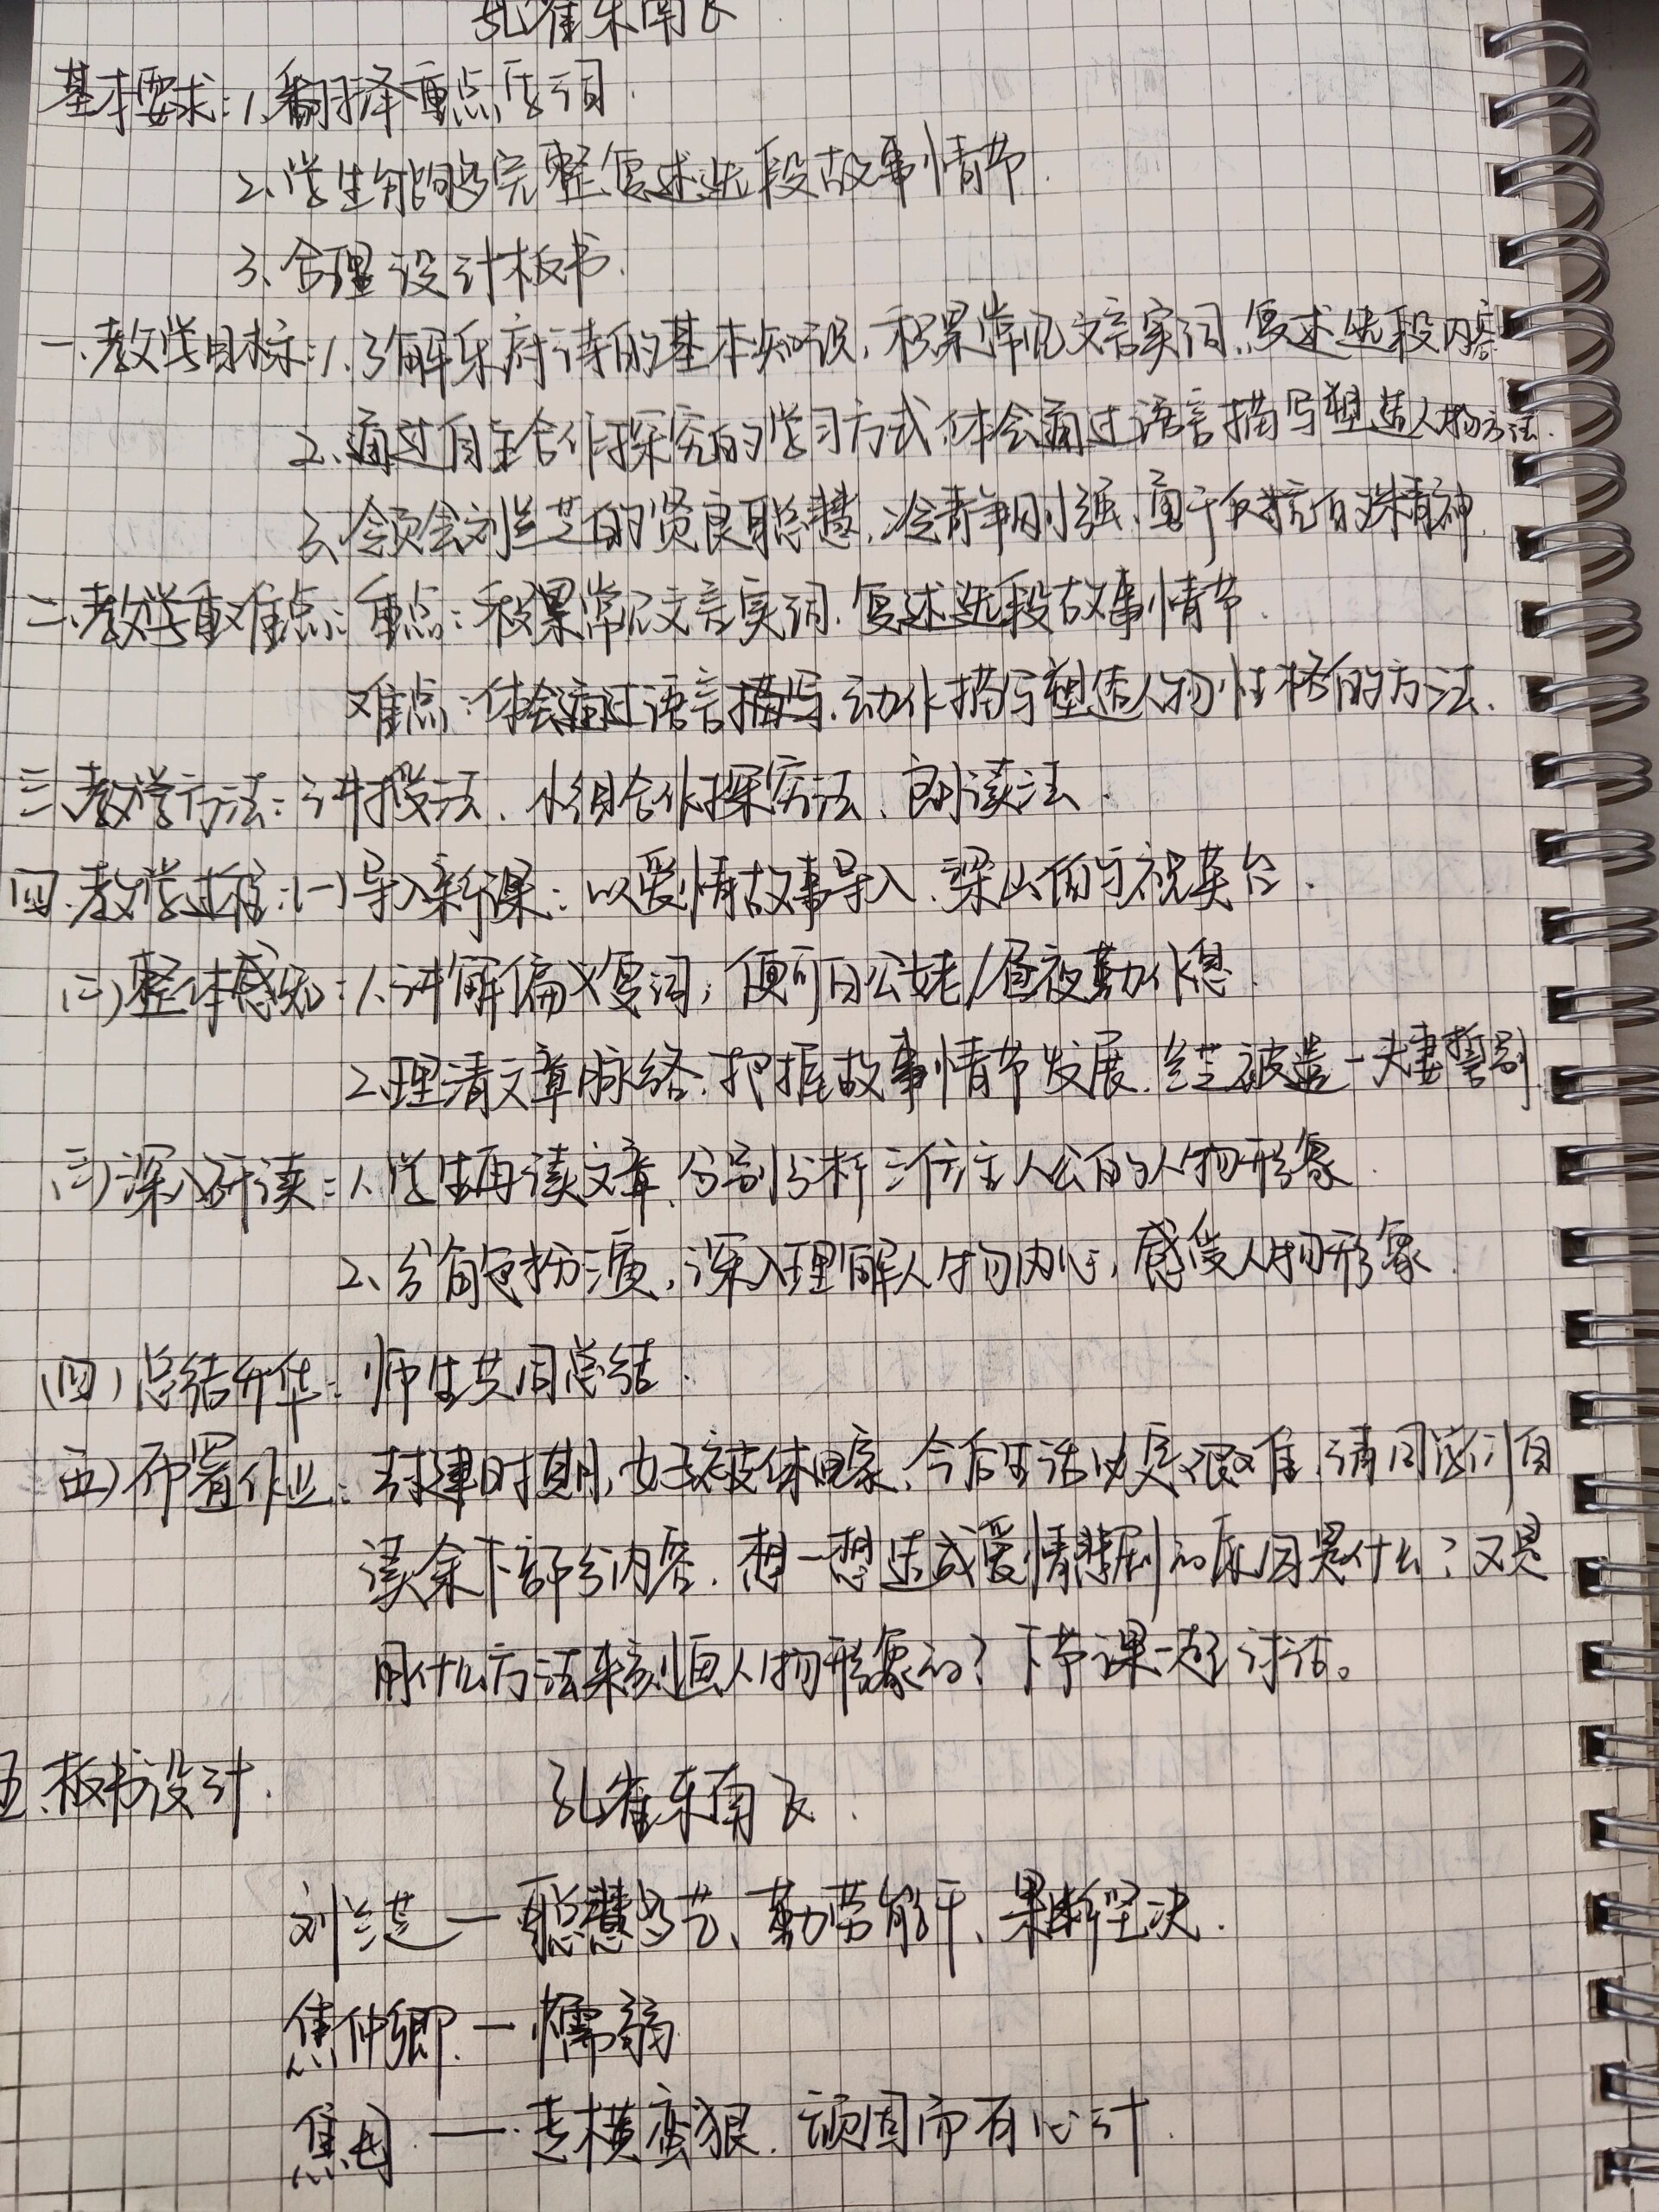 孔雀东南飞
基本要求:1、翻译重点字词.
2、学生能够完整复述选段故事情节.
3、合理设计板书.
一、教学目标:1、了解乐府诗的基本知识,积累常见文言实词,复述选段内容
2、通过自主合作探究的学习方式体会通过语言描写塑造人物方法.
3、领会刘兰芝的贤良聪慧,冷静刚强,富于反抗的精神.
二、教学重难点:重点:积累常见文言实词.复述选段故事情节.
难点:体会通过语言描写.动作描写塑造人物性格的方法.
三、教学方法:讲授法、小组合作探究法、朗读法.
四、教学过程:(一)导入新课:以爱情故事导入.梁山伯与祝英台.
(二)整体感知:1、讲解偏义复词,便可白公姥/昼夜勤作息.
2、理清文章脉络.把握故事情节发展.兰芝被遣—夫妻誓别.
(三)深入研读:1、学生再读文章.分别分析三位主人公的人物形象.
2、分角色扮演,深入理解人物内心,感受人物形象.
(四)总结升华:师生共同总结.
(五)布置作业:封建时期,女子被休回家,今后生活必定很难,请同学们自
读余下部分内容.想一想造成爱情悲剧的原因是什么?又是
用什么方法来刻画人物形象的?下节课一起讨论。
五、板书设计.
孔雀东南飞.
刘兰芝—聪慧多艺、勤劳能干、果断坚决.
焦仲卿.—懦弱
焦母.—专横蛮狠.顽固而有心计.